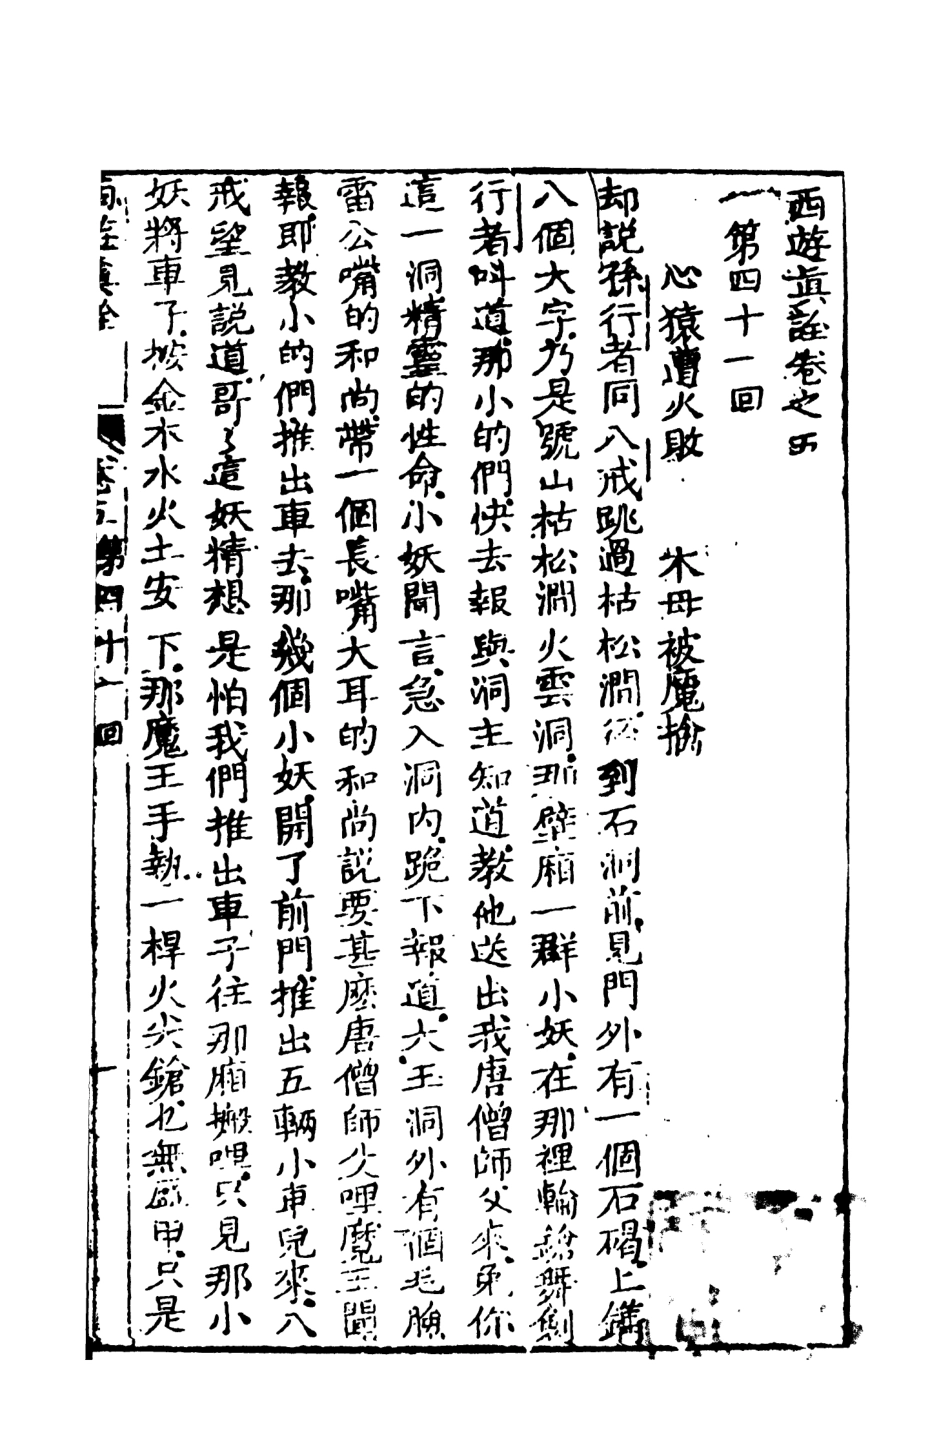 西遊眞詮卷之五
第四十一回
心猿遭火敗　木母被魔擒
却說孫行者同八戒跳過枯松澗徑到石洞前見門外有一個石碣上鐫
八個大字乃是號山枯松澗火雲洞那壁廂一群小妖在那裡輪鎗舞劍
行者呌道那小的們快去報與洞主知道教他送出我唐僧師父來免你
這一洞精靈的性命小妖聞言急入洞內跪下報道大王洞外有個毛臉
雷公嘴的和尚帶一個長嘴大耳的和尚說要甚麼唐僧師父哩魔王聞
報即教小的們推出車去那幾個小妖開了前門推出五輛小車兒來八
戒望見說道哥了這妖精想是怕我們推出車子往那廂搬哩只見那小
妖將車子按金木水火土安下那魔王手執一桿火尖鎗也無盔甲只是
西遊眞詮
卷五第四十一回
一